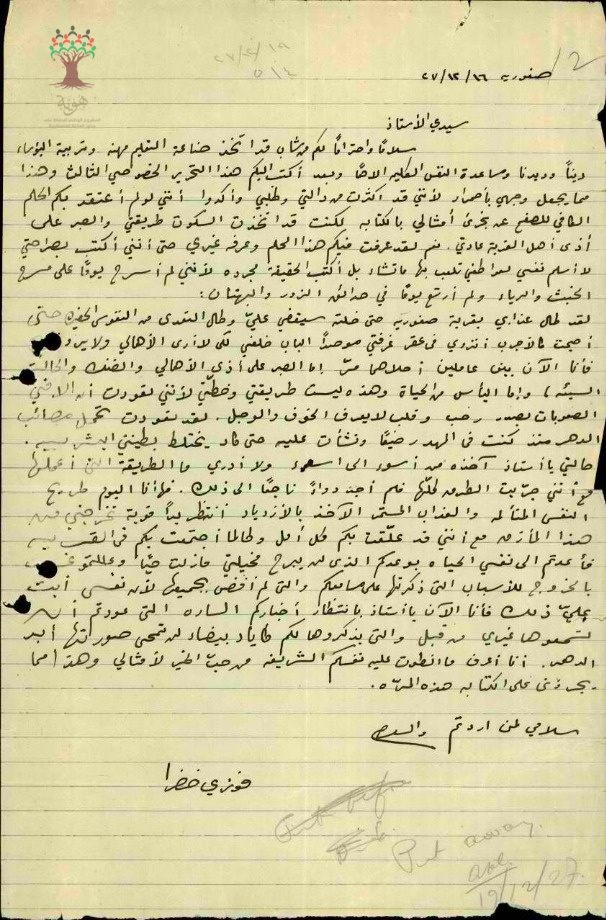 2
٢٧/١٢/١٩
صفورية ٢٧/١٢/١٦
سيدي الأستاذ
سلامًا واحترامًا لكم من شاب قد اتخذ صناعة التعليم مهنة وتربية البؤساء
دينًا وديدنا ومساعدة النفس وبعد أكتب اليكم هذا التحرير الخصوصي الثالث وهذا
مما يجعل وجهي بأصمرار لأنني قد اكثرت من والتي وطلبي وأكدوا أنني لو لم أعتقد بكم الحلم
الكافي للصفح عن تجرئ أمثالي بالكتابه لكنت قد اتخذت السكوت طريقتي والصبر على
أذى أهل القرية عادتي. نعم لقد عرفت فيكم هذا الحلم وعرفه غيري حتى أنني أكتب بصراحتي
لا أسلم نفسي لعواطفي تلعب بها ما تشاء بل أكتب الحقيقة مجرده لأنني لم أسرح يومًا على مسرح
الخبث والرياء ولم أرتع يومًا في حدائق الزور والبهتان:
لقد طال عذابي بقرية صفوريه حتى خلته سيقضي عليّ وطال التعدى من النفوس الحقيره حتى
أصبحت كالأجرب أنزوي في غرفتي موصدًا الباب خلفي لكي لا أرى الأهالي ولا
فأنا الآن بين عاملين أحلاهما مرّ إما الصبر على أذى الأهالي والضنك والحالة
السيئه، وإما اليأس من الحياة وهذه ليست طريقتي وخطتي لأنني تعودت أن
الصعوبات بصدر رحب وقلب لا يعرف الخوف والوجل. لقد تعودت تحمل مصائب
الدهر منذ كنت في المهد رضيعًا ونشأت عليه حتى كاد يختلط بطينتي البشريه.
حالتي يا أستاذ آخذه من أسوء الى اسوء ولا أدري ما الطريقة التي أعملها
مع أنني جرّبت الطرق كلّها فلم أجد دواءً ناجعًا الى ذلك. فها أنا اليوم طريح
النفس المتألمه والعذاب المستمر الآخذ بالأزدياد أنتظر يدًا قوية تخرجني من
هذا المأزق مع أنني قد علّقت بكم كل أمل وطالما اجتمعت بكم في
فأعدتم الى نفسي الحياه بوعدكم الذي لن يبرح مخيلتي مازلت حيًا
بالخروج للأسباب التي ذكرتها على مسامعكم والتي لم أفضى بجميعها لأن نفسي أبت
عليّ ذلك فأنا الآن يا أستاذ بانتظار أخباركم الساره التي عودتم أن
تسمعوها غيري من قبل والتي يذكروها لكم كأياد بيضاء لن تمحى صورتها أبد
الدهر. أنا أعرف ما انطوت عليه نفسكم الشريفه من حبّ الخير لأمثالي وهذا مما
يجرؤني على الكتابه هذه المرّه.
سلامي لمن اردتم والسلام
فوزي خضرا
Put away.
19/12/27.